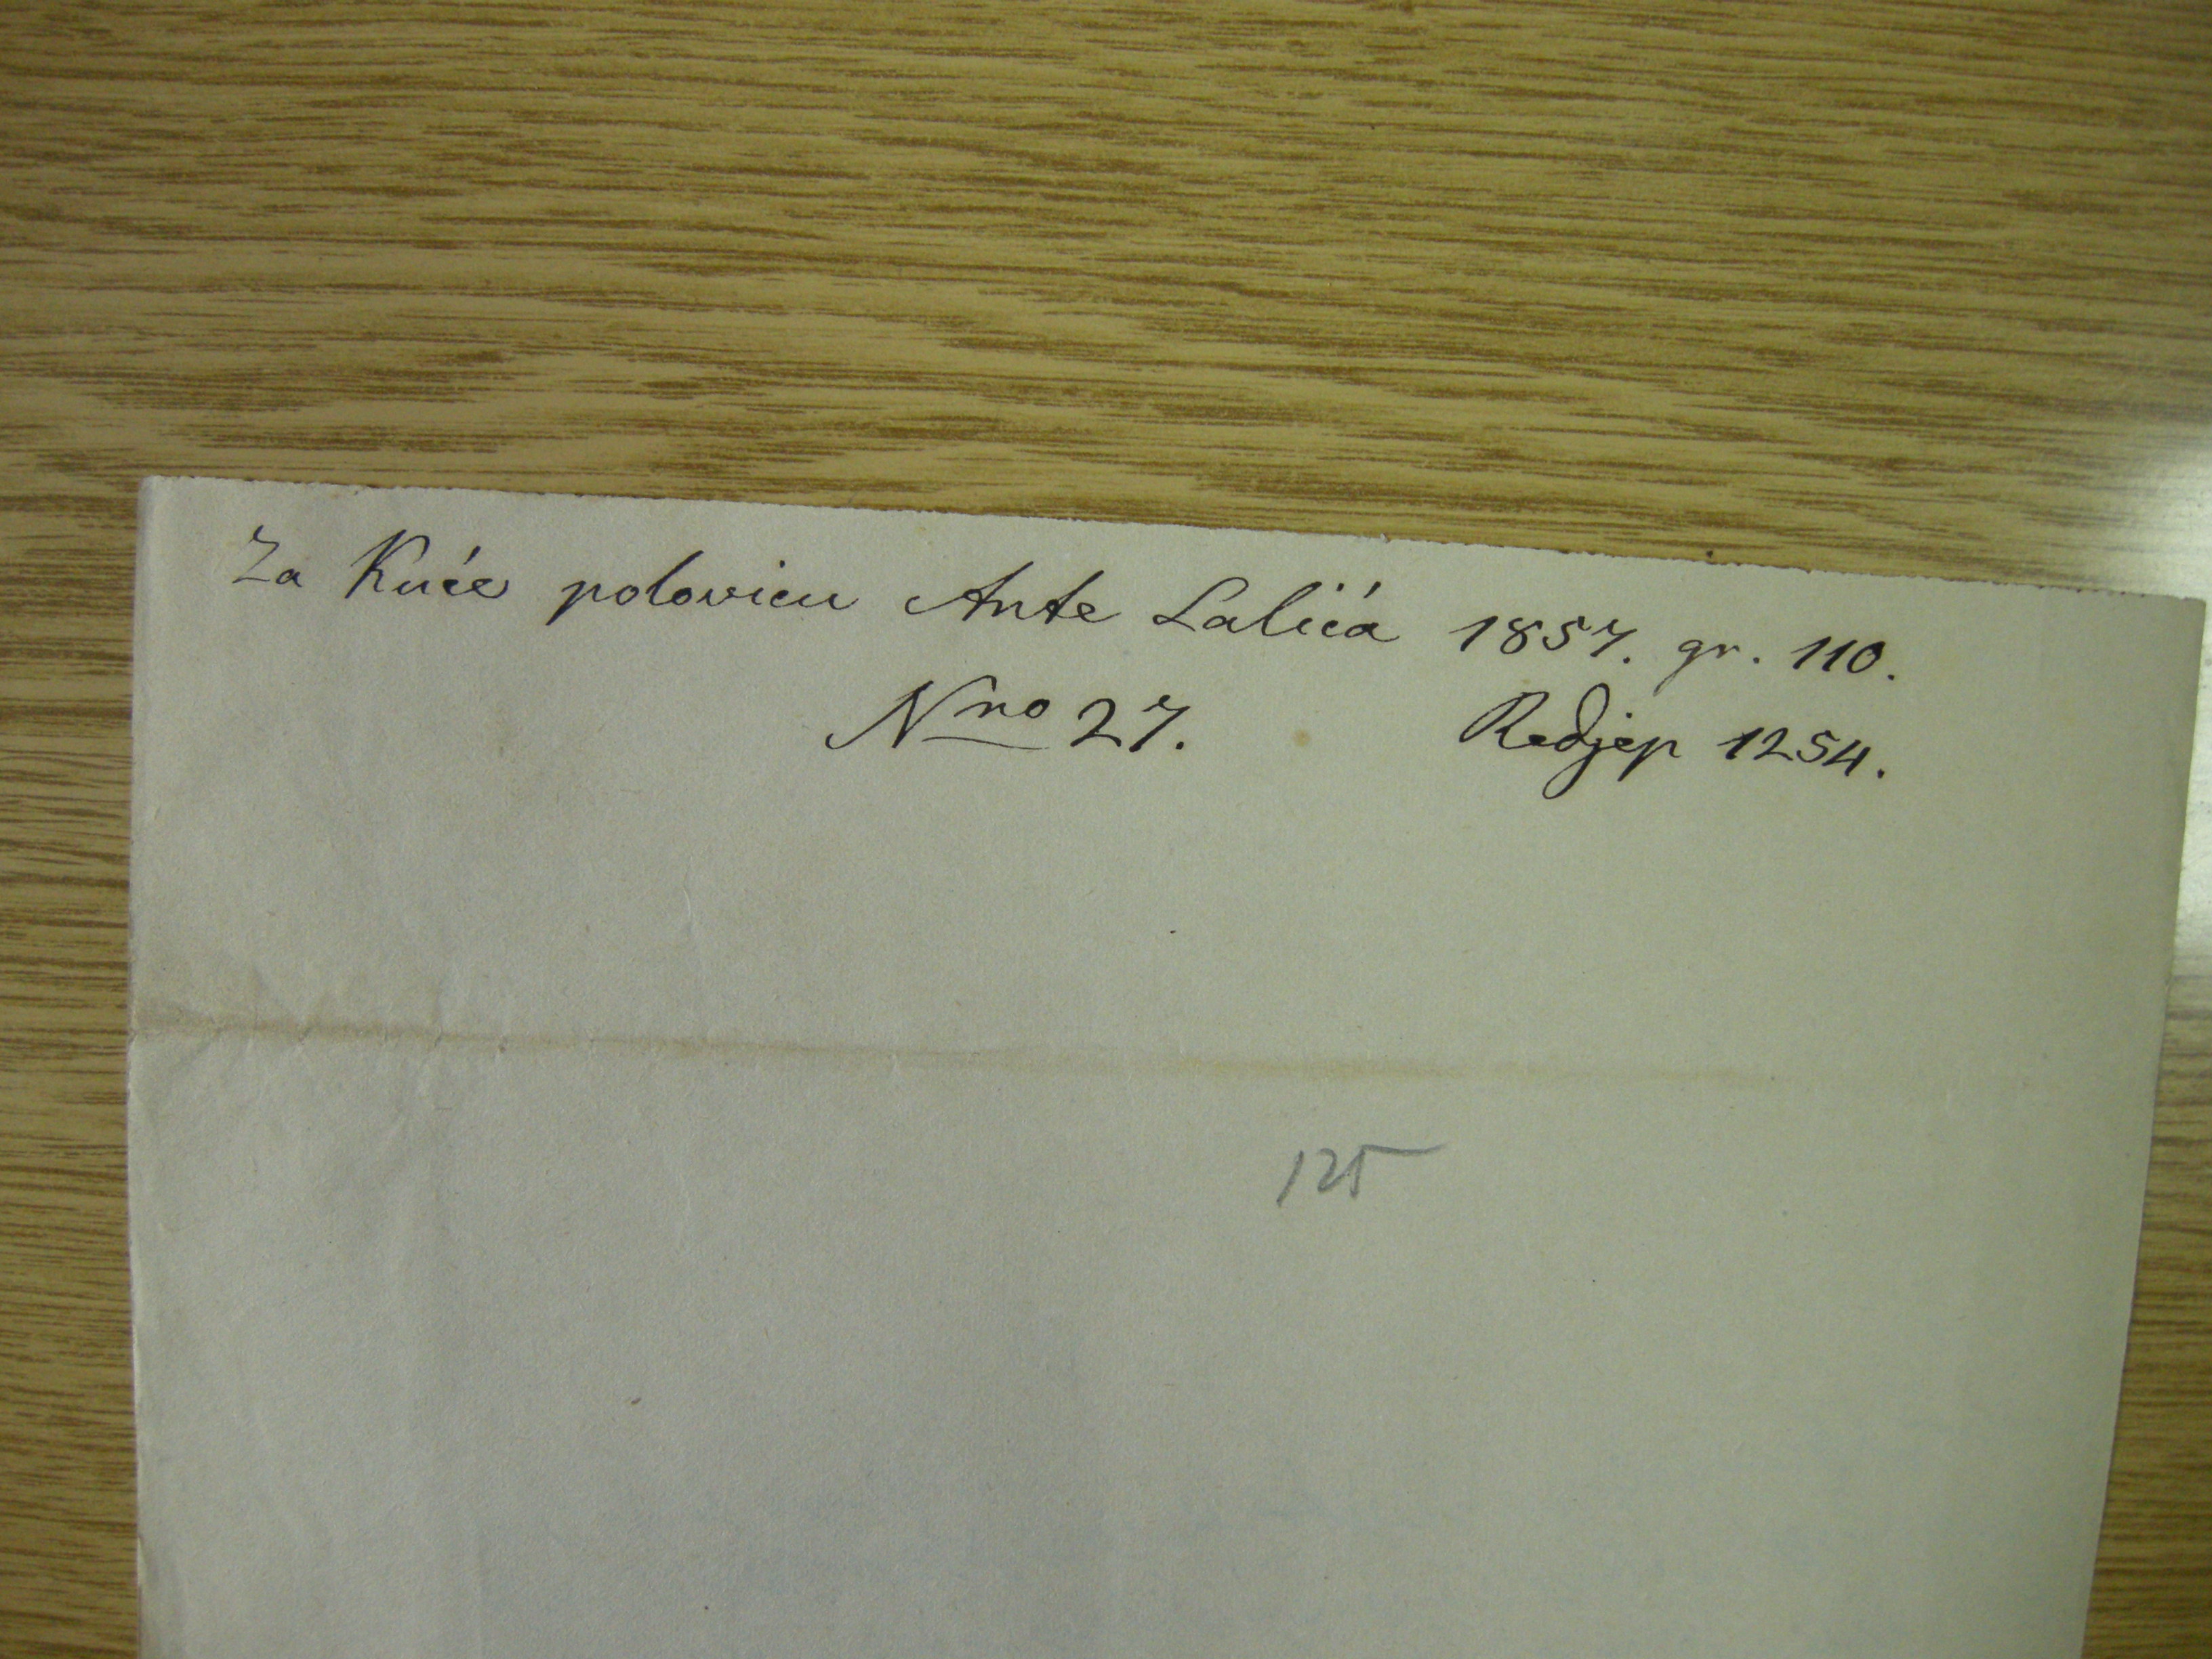 Za Kuće polovicu Ante Lalića 1857. gr. 110.
Nro 27. Redjep 1254.
125